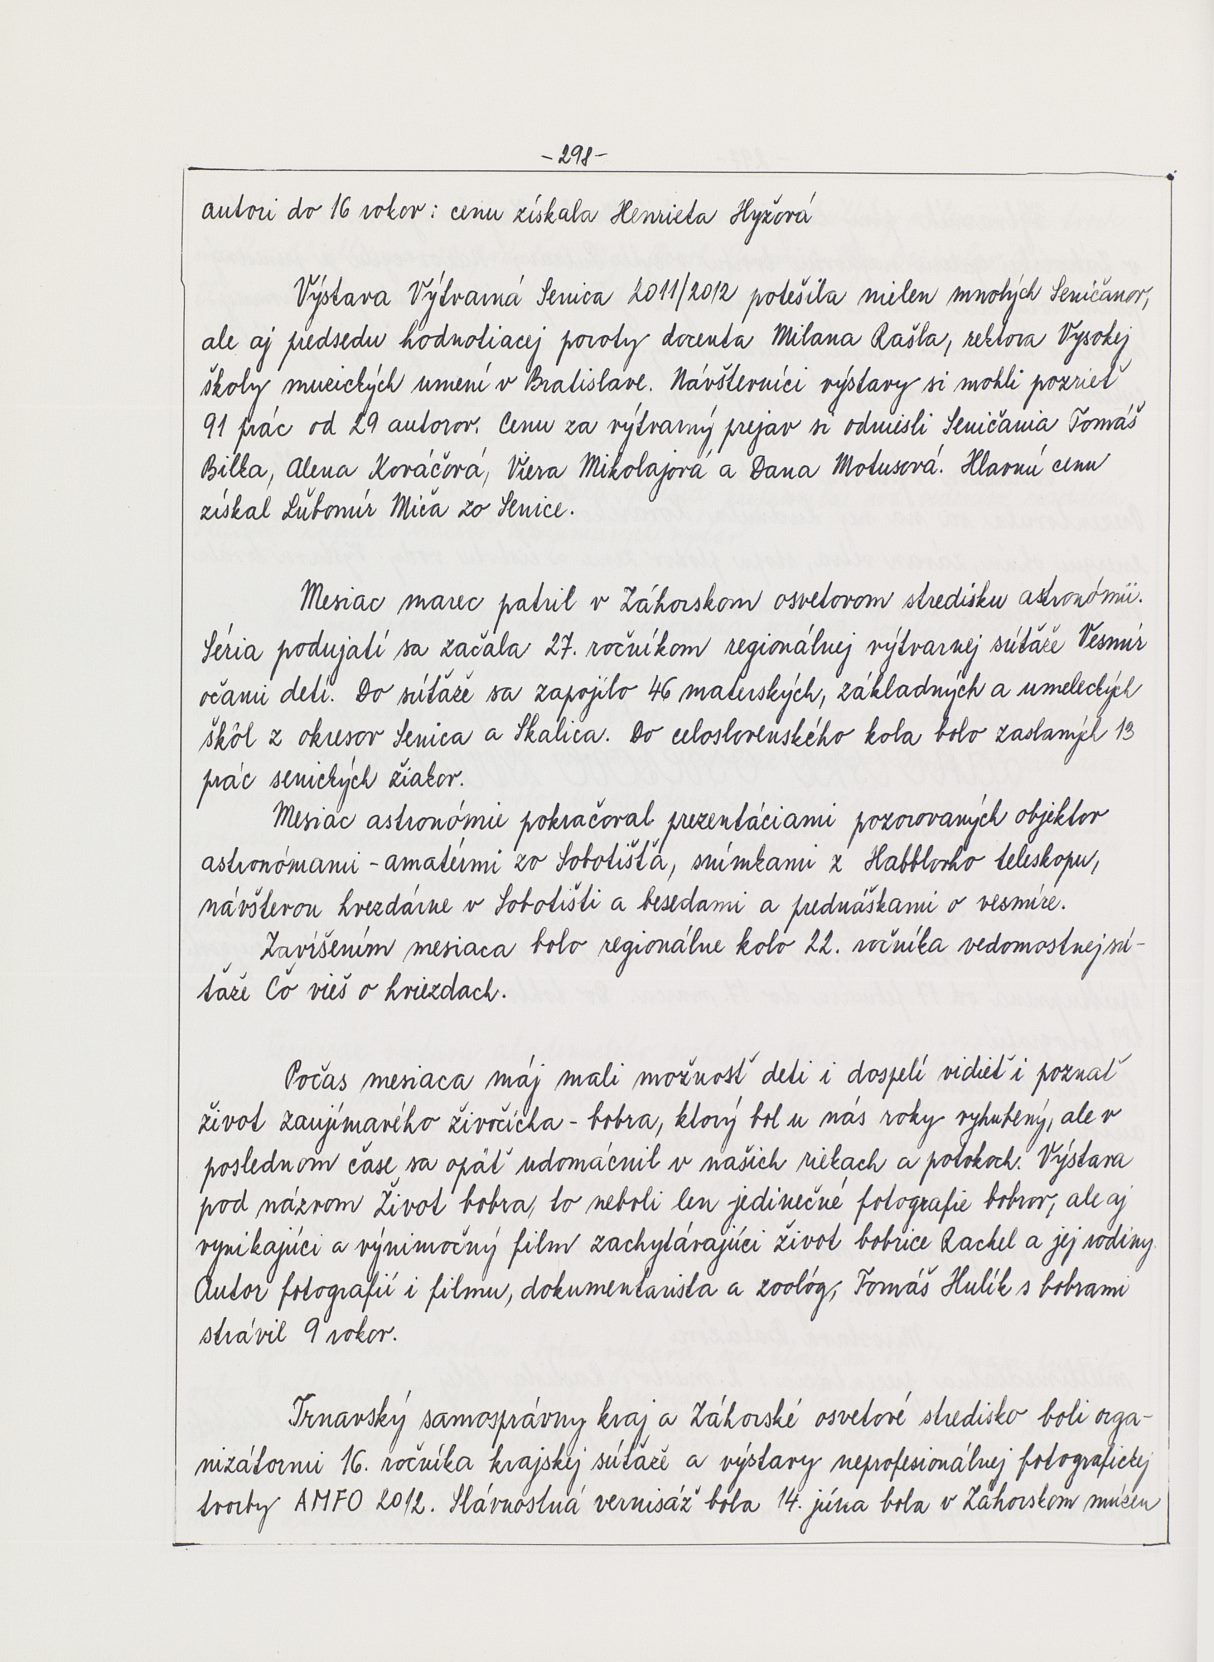 -298-
autori do 16 rokov: cenu získala Henrieta Hyžová
Výstava Výtvarná Senica 2011/2012 potešila nielen mnohých Seničanov,
ale aj predsedu hodnotiacej poroty docenta Milana Rašla, rektora Vysokej
školy muzických umení v Bratislave. Návštevníci výstavy si mohli pozrieť
91 prác od 29 autorov. Cenu za výtvarný prejav si odniesli Seničania Tomáš
Bilka, Alena Kováčová, Viera Mikolajová a Dana Motusová. Hlavnú cenu
získal Ľubomír Miča zo Senice.
Mesiac marec patril v Záhorskom osvetovom stredisku astronómii.
Séria podujatí sa začala 27. ročníkom regionálnej výtvarnej súťaže Vesmír
očami detí. Do súťaže sa zapojilo 46 materských, základných a umeleckých
škôl z okresov Senica a Skalica. Do celoslovenského kola bolo zaslaných 13
prác senických žiakov.
Mesiac astronómie pokračoval prezentáciami pozorovaných objektov
astronómami - amatérmi zo Sobotišťa, snímkami z Habblovho teleskopu,
návštevou hvezdárne v Sobotišti a besedami a prednáškami o vesmíre.
Zavŕšením mesiaca bolo regionálne kolo 22. ročníka vedomostnej sú-
ťaže Čo vieš o hviezdach.
Počas mesiaca máj mali možnosť deti i dospelí vidieť i poznať
život zaujímavého živočícha - bobra, ktorý bol u nás roky vyhubený, ale v
poslednom čase sa opäť udomácnil v našich riekach a potokoch. Výstava
pod názvom Život bobra, to neboli len jedinečné fotografie bobrov, ale aj
vynikajúci a výnimočný film zachytávajúci život bobrice Rachel a jej rodiny.
Autor fotografií i filmu, dokumentarista a zoológ, Tomáš Hulík s bobrami
strávil 9 rokov.
Trnavský samosprávny kraj a Záhorské osvetové stredisko boli orga-
nizátormi 16. ročníka krajskej súťaže a výstavy neprofesionálnej fotografickej
tvorby AMFO 2012. Slávnostná vernisáž bola 14. júna bola v Záhorskom múzeu